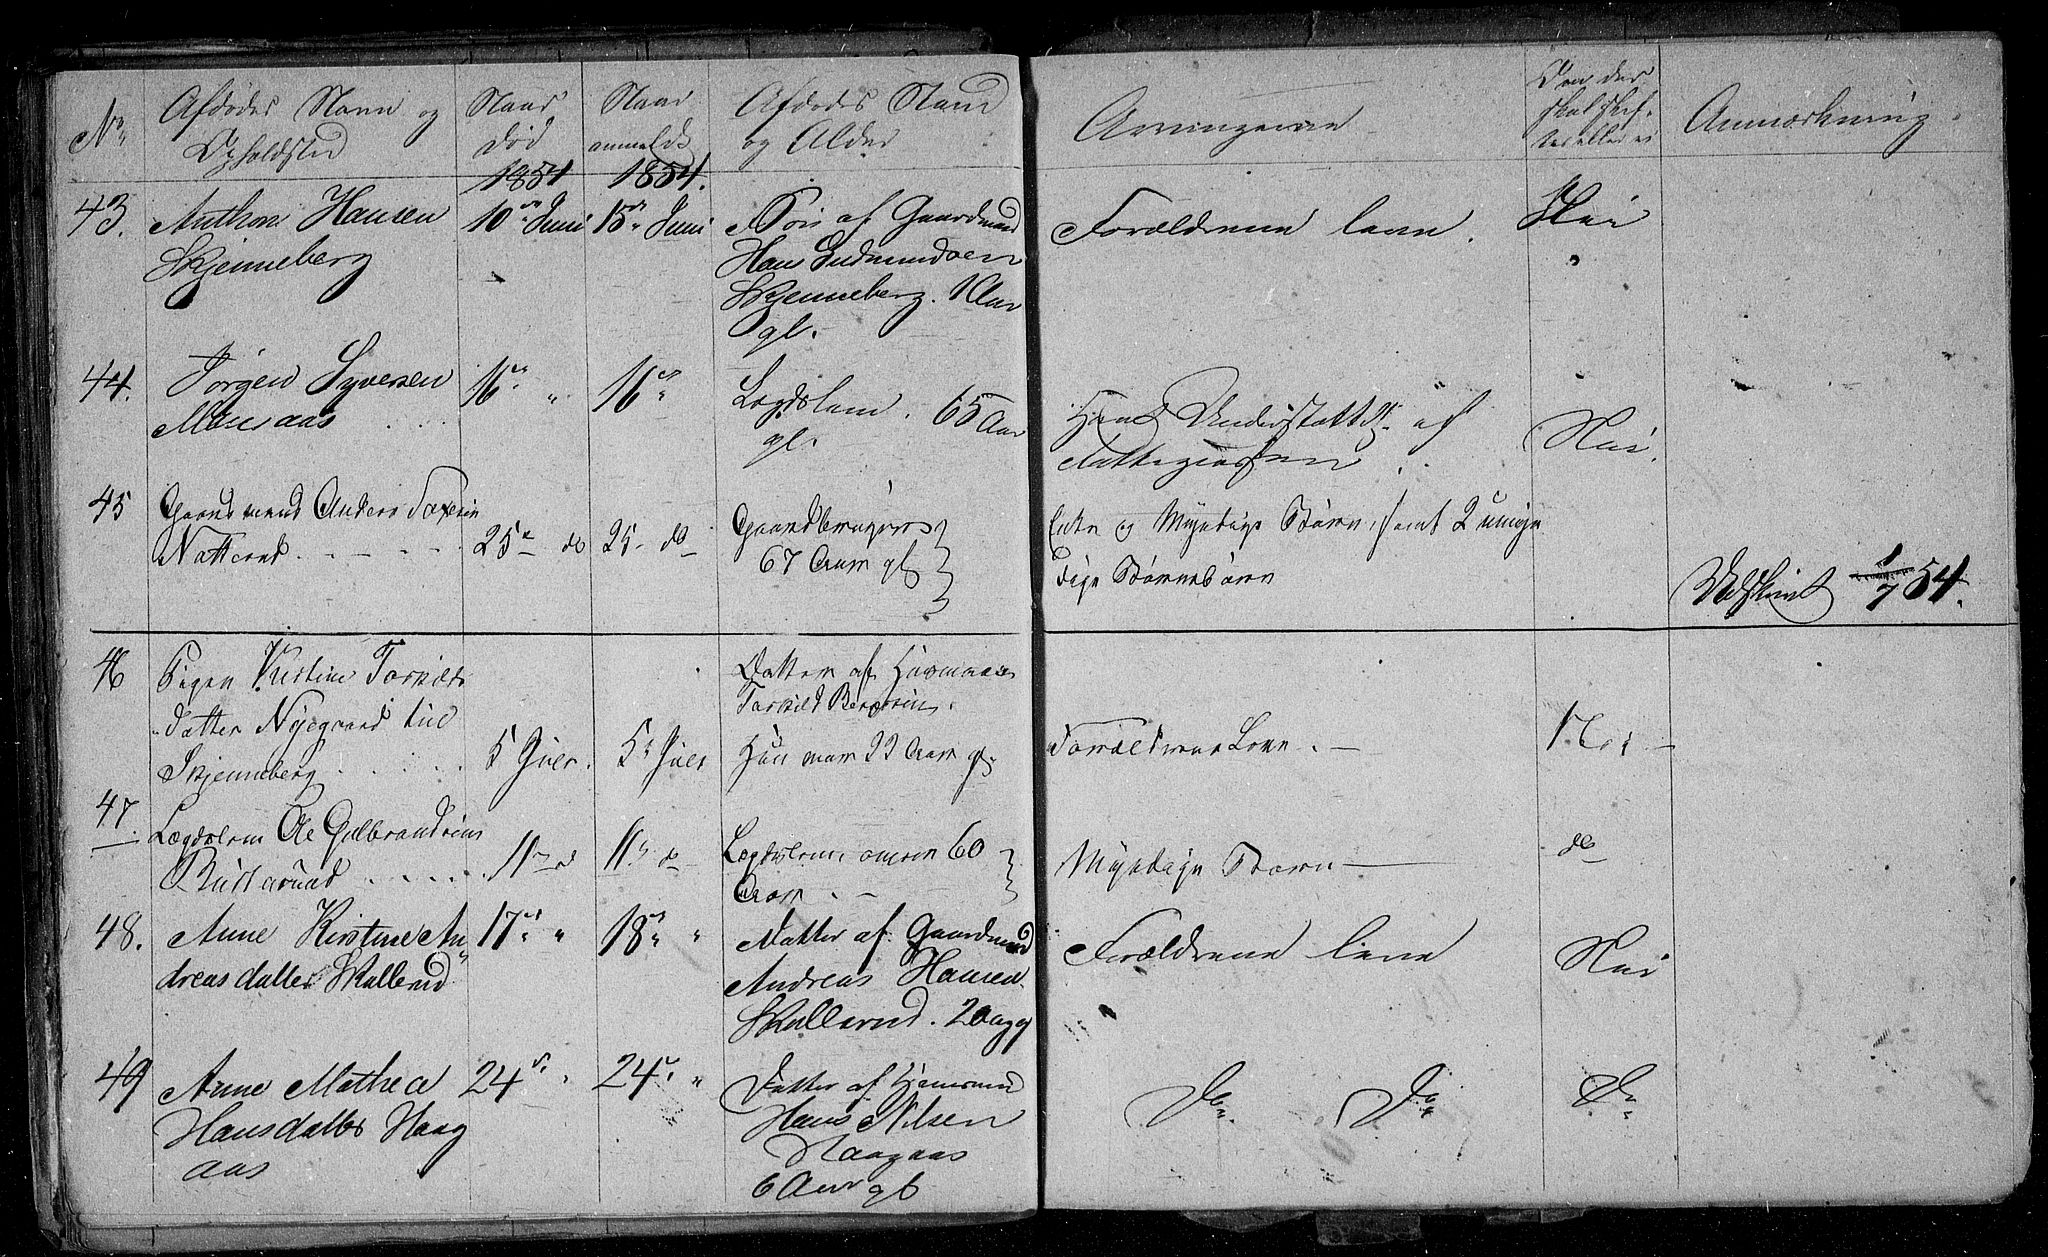 No
Afdødes Navn og
Opholdsted
Naar
død
1854
Naar
anmeldt
1854.
Afdødes Stand
og Alder
Arvingerne
Om der
skal skif-
tes eller ei
Anmærkning.
43.
Anthon Hansen
Skjenneberg
10de Juni
15de Juni
Søn af Gaardmand
Hans Gudmundsen
Skjenneberg. 1 Aar
gl.
Forældrene leve.
Nei
44.
Jørgen Syversen
Monsaas
16de "
16de "
Lægdslem. 65 Aar
gl.
Havt Understøttelse af
Fattigcassen
Nei.
45
Gaardmand Anders
Natterød
25de do
25 do
Gaardbruger
67 Aar gl
Enke og Myndige Børn, samt 2 umyn
dige Børnebørn
Udskrivt 1/7 54.
46
Pigen Kirstine Torkilds
datter Nyegaard
Skjenneberg
5 Juli
5 Juli
Datter af Huusmand
Torkild
Hun var 22 Aar gl.
Forældrene Leve.
Nei
47.
Lægdslem Ole Gulbrandsen
11 do
11 do
Lægdslem, omtrent 60
Aar
Myndige Børn
do
48.
Anne Kirstine An
dreasdatter Skallerud
17de "
18de "
Datter af Gaardmand
Andreas Hansen
Skallerud. 2 Dage gl
Forældrene leve
Nei
49
Anne Mathea
Hansdatter Haag
aas
24de "
24de "
Datter af Huusmand
Hans Nilsen
Haagaas
6 Aar gl
Do Do
Do